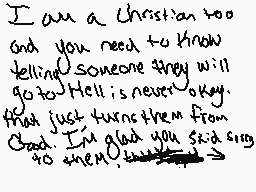 I am a Christian too
and you need to know
telling someone they will
go to Hell is never okay.
that just turns them from
God. I'm glad you said sorry
to them.